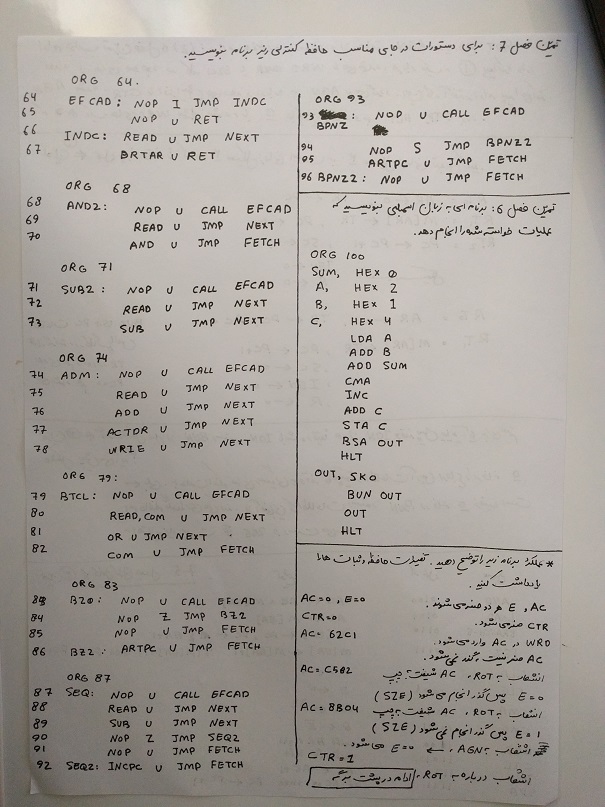 تمرین فصل 7: برای دستورات در جای مناسب حافظه کنترلی ریز برنامه بنویسید.
ORG 64.
64 EFCAD: NOP I JMP INDC
65 NOP U RET
66 INDC: READ U JMP NEXT
67 DRTAR U RET
ORG 68
68 AND2: NOP U CALL EFCAD
69 READ U JMP NEXT
70 AND U JMP FETCH
ORG 71
71 SUB2: NOP U CALL EFCAD
72 READ U JMP NEXT
73 SUB U JMP NEXT
ORG 74
74 ADM: NOP U CALL EFCAD
75 READ U JMP NEXT
76 ADD U JMP NEXT
77 ACTDR U JMP NEXT
78 WRIE U JMP NEXT
ORG 79:
79 BTCL: NOP U CALL EFCAD
80 READ, COM U JMP NEXT
81 OR U JMP NEXT
82 COM U JMP FETCH
ORG 83
83 BZ0: NOP U CALL EFCAD
84 NOP Z JMP BZ2
85 NOP U JMP FETCH
86 BZ2: ARTPC U JMP FETCH
ORG 87
87 SEQ: NOP U CALL EFCAD
88 READ U JMP NEXT
89 SUB U JMP NEXT
90 NOP Z JMP SEQ2
91 NOP U JMP FETCH
92 SEQ2: INCPC U JMP FETCH
ORG 93
93 NOP U CALL EFCAD
BPNZ
94 NOP S JMP BPNZ2
95 ARTPC U JMP FETCH
96 BPNZ2: NOP U JMP FETCH
تمرین فصل 6: برنامه ای به زبان اسمبلی بنویسید که
عملیات خواسته شده را انجام دهد.
ORG 100
SUM, HEX 0
A, HEX 2
B, HEX 1
C, HEX 4
LDA A
ADD B
ADD SUM
CMA
INC
ADD C
STA C
BSA OUT
HLT
OUT, SKO
BUN OUT
OUT
HLT
* عملکرد برنامه زیر را توضیح دهید. تغییرات حافظه و ثبات ها را
یادداشت کنید.
AC=0, E=0 AC و E هر دو صفر می شوند.
CTR=0 CTR صفر می شود.
AC=62C1 WRD در AC وارد می شود.
AC صفر نیست گذر نمی شود.
AC=C582 انشعاب به ROT، AC شیفت به چپ
E=0 پس گذر انجام می شود (SZE)
AC=8B04 انشعاب به ROT، AC شیفت به چپ
E=1 پس گذر انجام نمی شود (SZE)
انشعاب به AGN، ← E=0 می شود.
CTR=1
انشعاب دوباره به ROT، ادامه در پشت برگه